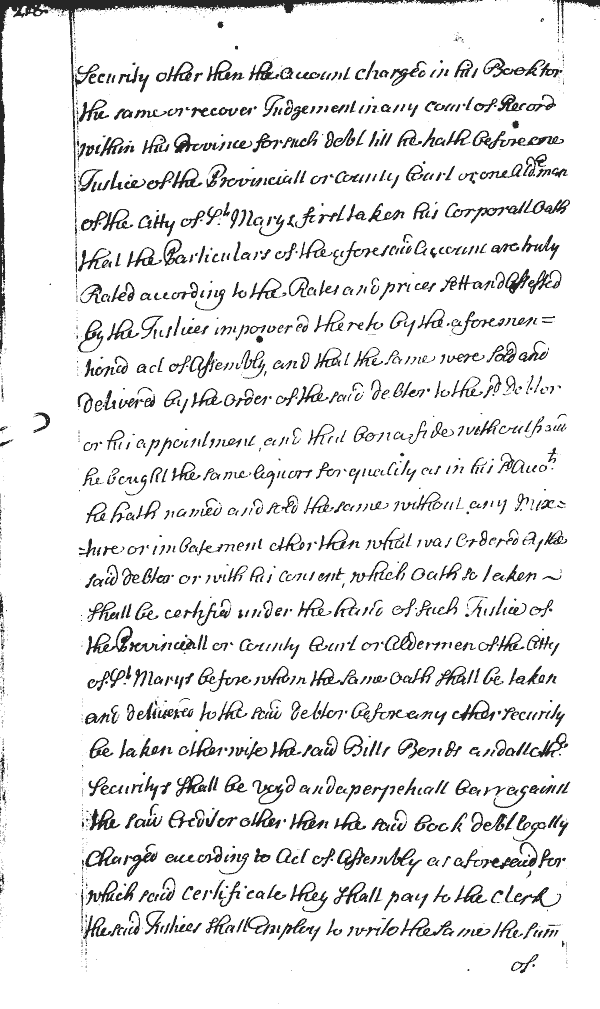 218.
Security other then the account charged in his Book for
the same or recover Judgement in any court of Record
within this Province for such debt till he hath before one
Justice of the Provinciall or County Court or one Aldermen
of the Citty of St. Marys first taken his Corporall Oath
that the Particulars of the aforesaid Account are truly
Rated according to the Rates and prices sett and Assessed
by the Justices impowered thereto by the aforemen =
tioned act of Assembly, and that the same were sold and
delivered by the order of the said debtor to the sd. Debtor
or his appointment, and that bona fide without fraud
he bought the same liquors for quality as in his sd Accot.
he hath named and sold the same without any Mix=
=ture or imbasement other then what was Ordered by the
said debtor or with his consent, which Oath so taken ~
shall be certified under the hand of such Justice of
the Provinciall or County Court or Aldermen of the Citty
of St Marys before whom the same Oath shall be taken
and delivered to the said debtor before any other security
be taken otherwise the said Bills Bonds and all othr.
Securitys shall be voyd and a perpetuall barr against
the said Creditor other then the said book debt legally
Charged according to Act of Assembly as aforesaid, for
which said Certificate they shall pay to the Clerk
the said Justices shall Employ to write the same the sum
of.